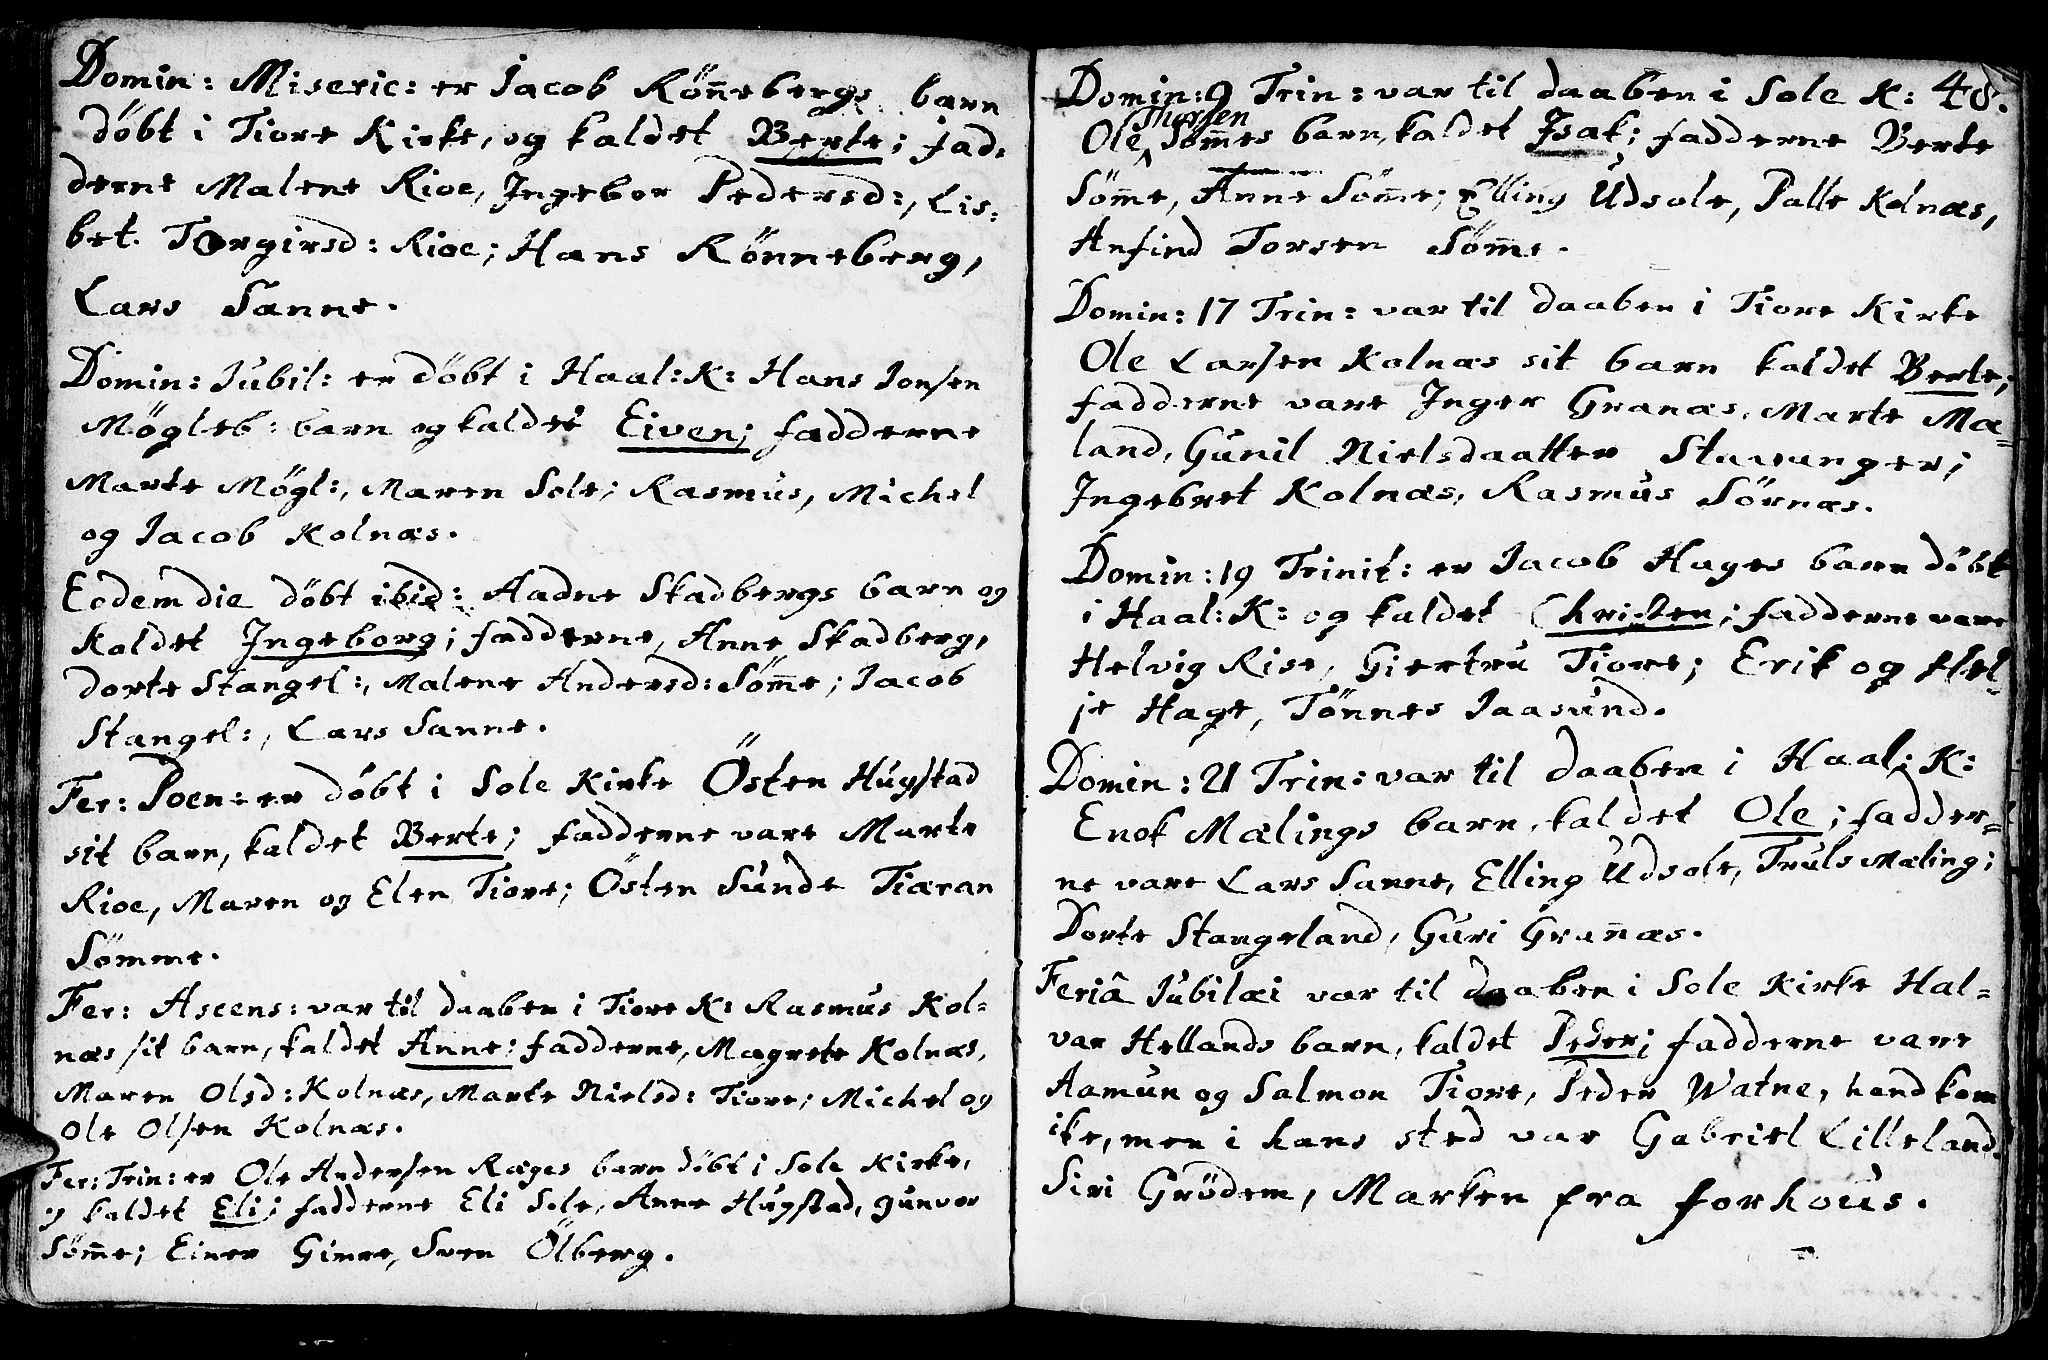 Domin: Miseric: er Jacob Rön̄ebergs barn
döbt i Tiore Kirke, og kaldet Berte; fad-
derne Malene Rioe, Ingebor Pedersd:, Lis-
bet Torgirsd: Rioe; Hans Rönneberg,
Lars Sanne.
Domin: Jubil: er döbt i Haal: K: Hans Jonsen
Mögleb: barn og kaldet Eiven; fadderne
Marte Mögl:, Maren Sole; Rasmus, Michel
og Jacob Kolnæs.
Eodem die döbt ibid: Aadne Skadbergs barn og
kaldet Ingeborg; fadderne, Anne Skadberg,
dorte Stangel:, Malene Andersd: Söm̄e; Jacob
Stangel:, Lars Sanne.
Fer: Poen: er döbt i Sole Kirke Östen Hugstad
sit barn, kaldet Berte; fadderne vare Marte
Rioe, Maren og Elen Tiore; Östen Sunde Tiæran
Sömme.
Fer: Ascens: var til daaben i Tiore K: Rasmus Kol-
næs sit barn, kaldet Anne; fadderne, Magrete Kolnæs,
Maren Olsd: Kolnæs, Marte Nielsd: Tiore; Michel og
Ole Olsen Kolnæs.
Fer: Trin: er Ole Andersen Ræges barn döbt i Sole Kirke,
og kaldet Eli; fadderne Eli Sole, Anne Hugstad, gunvor
Söm̄e; Einer Gimre, Sven Ölberg.
Domin: 9 Trin: var til daaben i Sole K: 48.
Thorsen
Ole Söm̄es barn, kaldet Isak; fadderne Berte
Söm̄e, Anne Söm̄e; Elling Udsole, Palle Kolnæs,
Anfind Torsen Söm̄e.
Domin: 17 Trin: var til daaben i Tiore Kirke
Ole Larsen Kolnæs sit barn kaldet Berte;
fadderne vare Inger Granæs, Marte Ma-
land, Gunil Nielsdaatter Stavanger;
Ingebret Kolnæs, Rasmus Sörnæs.
Domin: 19 Trinit: er Jacob Hages barn döbt
i Haal: K: og kaldet Christen; fadderne vare
Helvig Rise, Giertru Tiore; Erik og Hel-
je Hage, Tönnes Jaasund.
Domin: 21 Trin: var til daaben i Haal: K:
Enok Mælings barn, kaldet Ole; fadder-
ne vare Lars Sanne, Elling Udsole, Truls Mæling;
Dorte Stangeland, Guri Gran̄æs.
Feriâ Jubilæi var til daaben i Sole Kirke Hal-
var Hellands barn, kaldet Peder; fadderne vare
Aamun og Salmon Tiore, Peder Watne, hand kom
ike, men i hans sted var Gabriel Lilleland.
Siri Grödem, Marken fra forhous.